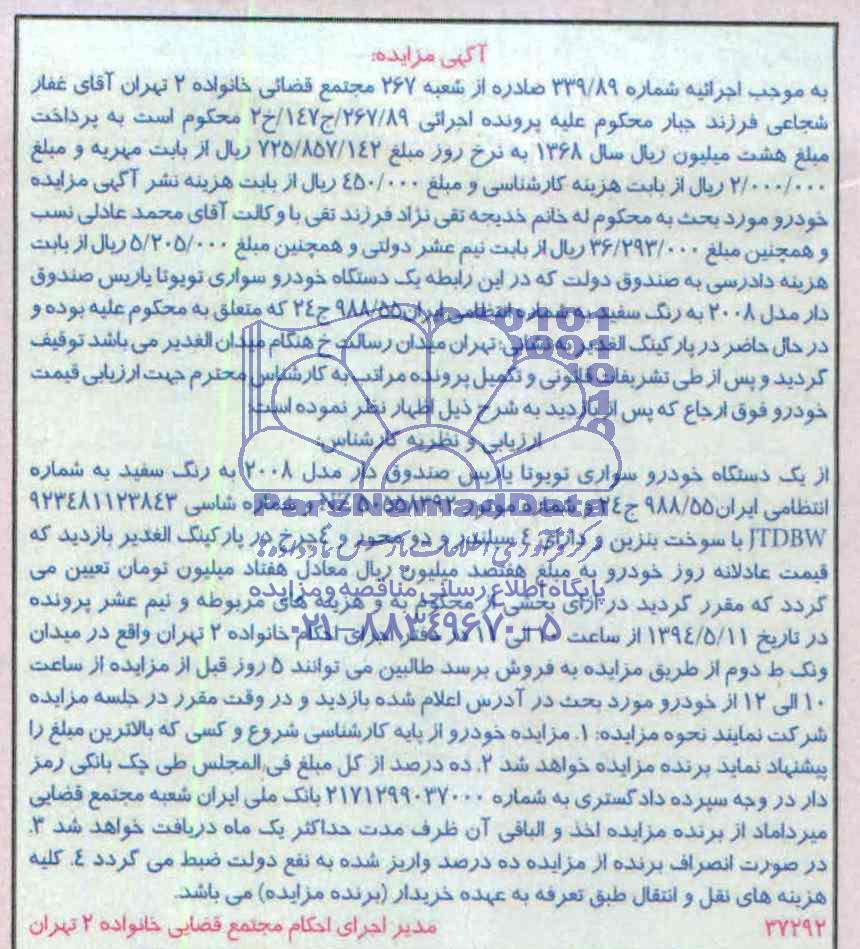 آگهی مزایده:
به موجب اجرائیه شماره ۳۳۹/۸۹ صادره از شعبه ۲۶۷ مجتمع قضائی خانواده ۲ تهران آقای غفار
شجاعی فرزند جبار محکوم علیه پرونده اجرائی ۲۶۷/۸۹/ج۱۴۷/خ۲ محکوم است به پرداخت
مبلغ هشت میلیون ریال سال ۱۳۶۸ به نرخ روز مبلغ ۷۲۵/۸۵۷/۱۴۲ ریال از بابت مهریه و مبلغ
۲/۰۰۰/۰۰۰ ریال از بابت هزینه کارشناسی و مبلغ ۴۵۰/۰۰۰ ریال از بابت هزینه نشر آگهی مزایده
خودرو مورد بحث به محکوم له خانم خدیجه تقی نژاد فرزند تقی با وکالت آقای محمد عادلی نسب
و همچنین مبلغ ۳۶/۲۹۳/۰۰۰ ریال از بابت نیم عشر دولتی و همچنین مبلغ ۵/۲۰۵/۰۰۰ ریال از بابت
هزینه دادرسی به صندوق دولت که در این رابطه یک دستگاه خودرو سواری تویوتا یاریس صندوق
دار مدل ۲۰۰۸ به رنگ سفید به شماره انتظامی ایران۹۸۸/۵۵ ج۲۴ که متعلق به محکوم علیه بوده و
در حال حاضر در پارکینگ الغدیر به نشانی: تهران میدان رسالت خ هنگام میدان الغدیر می باشد توقیف
گردید و پس از طی تشریفات قانونی و تکمیل پرونده مراتب به کارشناس محترم جهت ارزیابی قیمت
خودرو فوق ارجاع که پس از بازدید به شرح ذیل اظهار نظر نموده است:
ارزیابی و نظریه کارشناس:
از یک دستگاه خودرو سواری تویوتا یاریس صندوق دار مدل ۲۰۰۸ به رنگ سفید به شماره
انتظامی ایران۹۸۸/۵۵ ج۲۴ و شماره موتور ۵۰۵۵۸۳۹۲ NZ و شماره شاسی ۹۲۳۴۸۱۱۲۳۸۴۳
JTDBW با سوخت بنزین و دارای ۴ سیلندر و دو محور و ۴چرخ در پارکینگ الغدیر بازدید که
قیمت عادلانه روز خودرو به مبلغ هفتصد میلیون ریال معادل هفتاد میلیون تومان تعیین می
گردد که مقرر گردید در ازای بخشی از محکوم به و هزینه های مربوطه و نیم عشر پرونده
در تاریخ ۱۳۹۴/۵/۱۱ از ساعت ۱۰ الی ۱۱ در دفتر اجرای احکام خانواده ۲ تهران واقع در میدان
ونک ط دوم از طریق مزایده به فروش برسد طالبین می توانند ۵ روز قبل از مزایده از ساعت
۱۰ الی ۱۲ از خودرو مورد بحث در آدرس اعلام شده بازدید و در وقت مقرر در جلسه مزایده
شرکت نمایند نحوه مزایده: ۱. مزایده خودرو از پایه کارشناسی شروع و کسی که بالاترین مبلغ را
پیشنهاد نماید برنده مزایده خواهد شد ۲. ده درصد از کل مبلغ فی المجلس طی چک بانکی رمز
دار در وجه سپرده دادگستری به شماره ۲۱۷۱۲۹۹۰۳۷۰۰۰ بانک ملی ایران شعبه مجتمع قضایی
میرداماد از برنده مزایده اخذ و الباقی آن ظرف مدت حداکثر یک ماه دریافت خواهد شد ۳.
در صورت انصراف برنده از مزایده ده درصد واریز شده به نفع دولت ضبط می گردد ۴. کلیه
هزینه های نقل و انتقال طبق تعرفه به عهده خریدار (برنده مزایده) می باشد.
۳۷۲۹۲ مدیر اجرای احکام مجتمع قضایی خانواده ۲ تهران
ParsNamadData
پایگاه اطلاع رسانی مناقصه و مزایده
۰۲۱-۸۸۳۴۹۶۷۰-۵